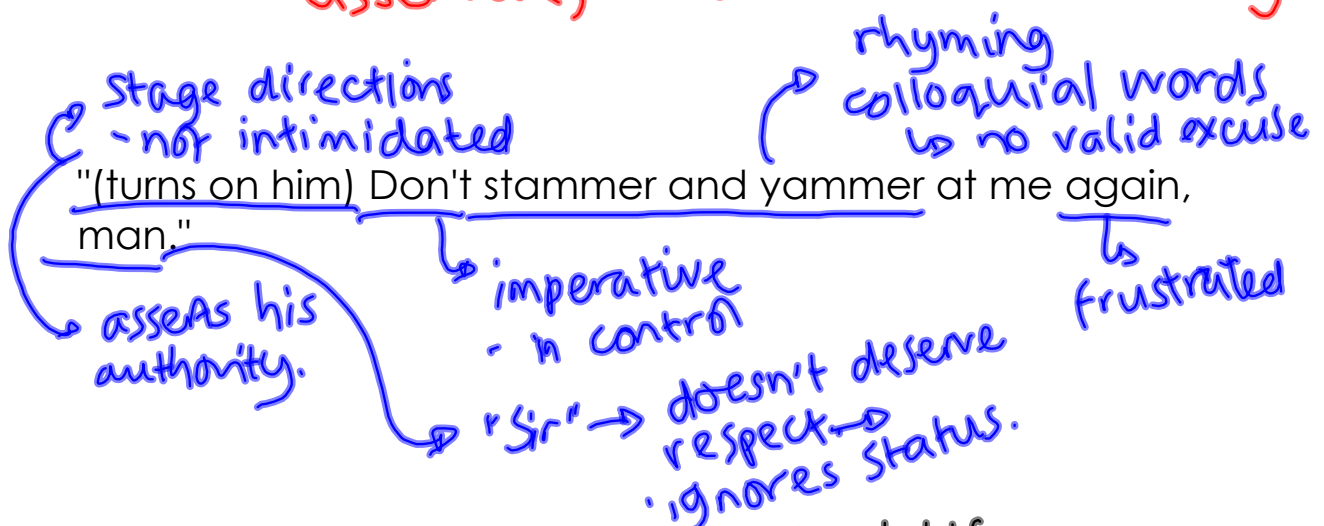 stage directions
- not intimidated
rhyming
colloquial words
↳ no valid excuse
"(turns on him) Don't stammer and yammer at me again,
man."
asserts his
authority.
imperative
- in control
frustrated
"Sir" → doesn't deserve
respect →
· ignores status.